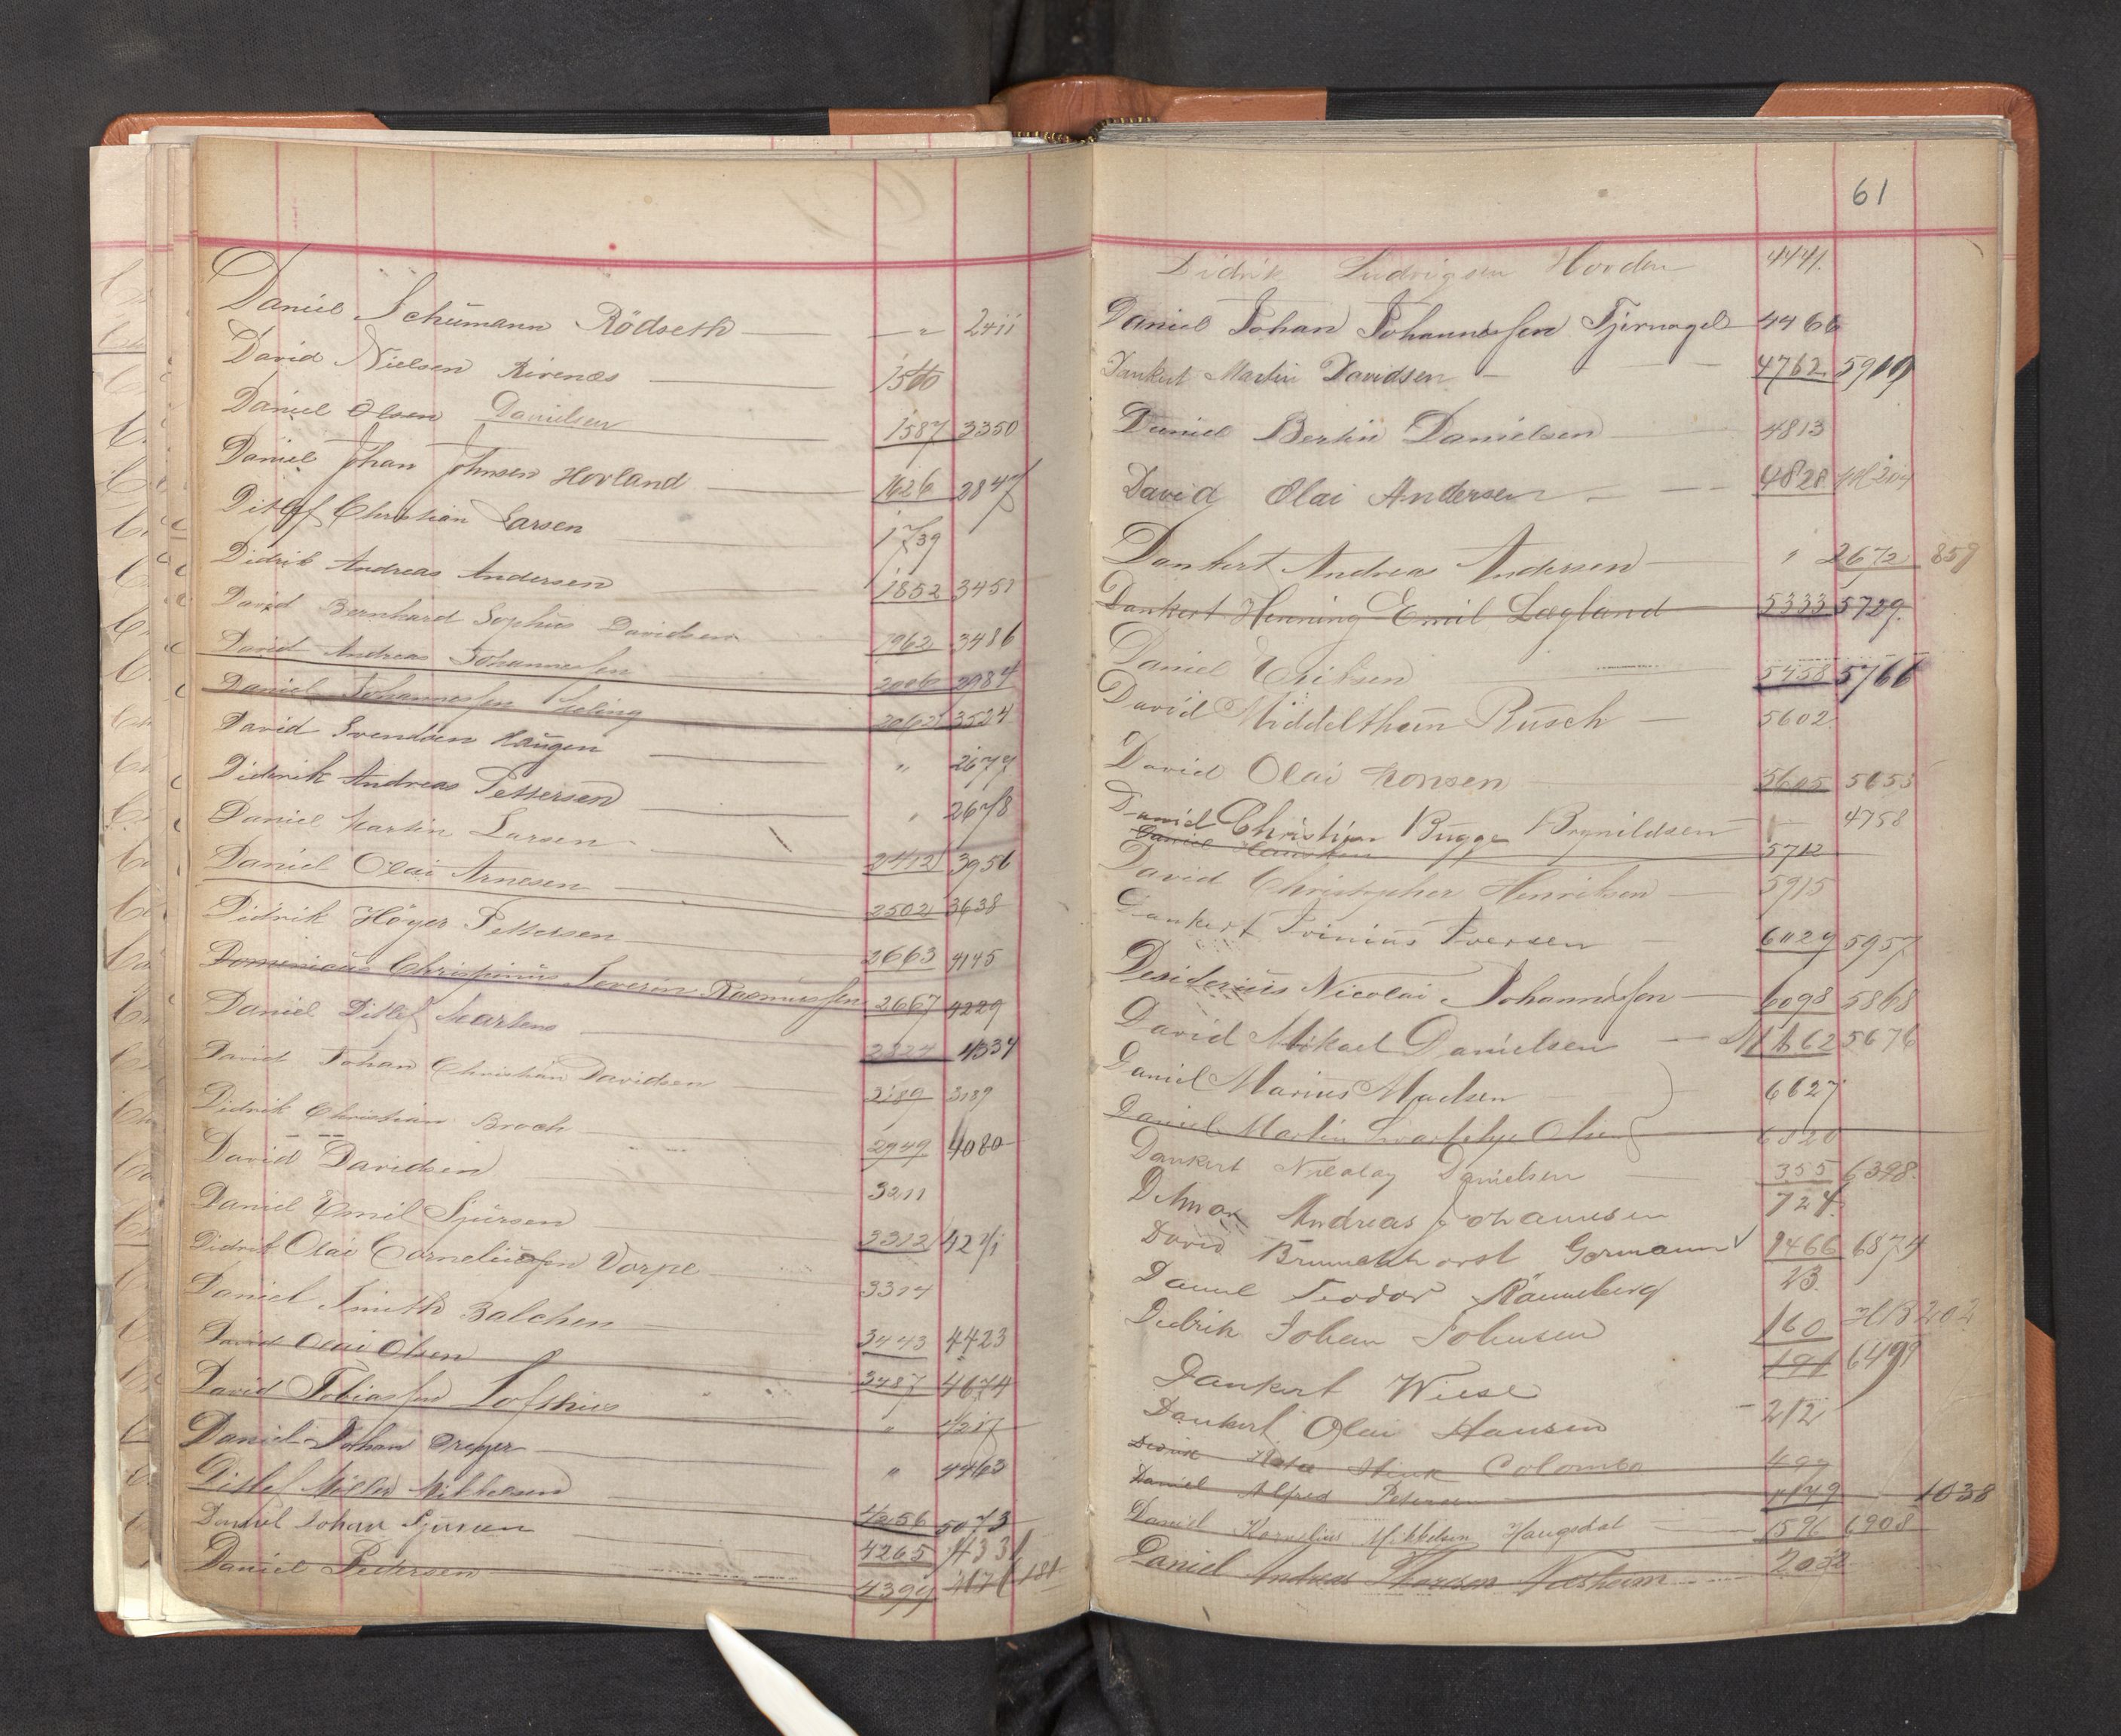 Daniel Schumann Rödseth — „ 2411
David Nielsen Rivenes — 1560
Daniel Olsen Danielsen — 1587 3350
Daniel Johan Johnsen Hovland — 1626 2847
Ditlef Christian Larsen 1739
Didrik Andreas Andersen 1852 3451
David Bernhard Sophus Davidsen 1962 3486
David Andreas Johannessen 2006 2984
Daniel Johannessen 2062 3524
David Svendsen Haugen — „ 2677
Diderik Andreas Pettersen — „ 2678
Daniel Martin Larsen — 2412 3956
Daniel Olai Arnesen — 2502 3638
Didrik Höyer Pettersen — 2663 4145
Domenicus Chrispinus Severin Rasmussen 2667 4229
Daniel Ditlef Martens — 2824 4337
David Johan Christian Davidsen — 3189
Didrik Christian Broch — 2949 4080
David Davidsen 3211
Daniel Emil Sjursen — 3312
Didrik Olai Corneliussen Vorpe — 3314
Daniel Smith Balchen — 3443 4423
David Olai Olsen 3487 4674
David Tobiassen Lofthus „ 4217
Daniel Johan Dreyer — „ 4463
Ditlef Möller Mikkelsen 4256 5073
Daniel Johan Sjursen 4265
Daniel Pedersen 4399
61
Didrik Ludvigsen Hordan 4441.
Daniel Johan Johannessen Tjernagel 4466
Dankert Martin Davidsen — 4762
Daniel Bertin Danielsen 4813
David Olai Andersen — 4828
Dankert Andreas Andersen — „ 2672 859
Dankert Henning Emil Lægland — 5333 5729.
Daniel Eriksen 5458 5766
David Middelthun Rusch 5602
David Olai Monsen 5605 5653
David Christian Bugge Brynildsen — 4758
Daniel 5712
David Christopher Henriksen — 5915
Dankert Ivinius Iversen — 6029 5957
Desiderius Nicolai Johannessen — 6098 5868
David Mikael Danielsen — 5676
Daniel Marius Madsen 6627
Daniel Martin Olsen 6320
Dankert Nicolay Danielsen — 355 6398.
Ditmar Andreas Johannesen 724.
David Brunchhorst Gormann √ 1466 6874
Daniel Teodor Rønneberg 23.
Didrik Johan Johnsen 160
191 6499
Dankert Wiese
Dankert Olai Hansen — 212
Colombo 499
Daniel Alfred Petersen — 1149 — 1038
Daniel Kornelius Mikkelsen Haugsdal — 1596 6908
Daniel Andreas Thorsen Næsheim 2032